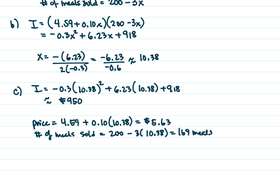 # of meals sold = 200 - 3x
b) I = (4.59 + 0.10x)(200 - 3x)
= -0.3x² + 6.23x + 918
x = -(6.23) / 2(-0.3) = -6.23 / -0.6 ≈ 10.38
c) I = -0.3(10.38)² + 6.23(10.38) + 918
≈ $950
price = 4.59 + 0.10(10.38) = $5.63
# of meals sold = 200 - 3(10.38) = 169 meals